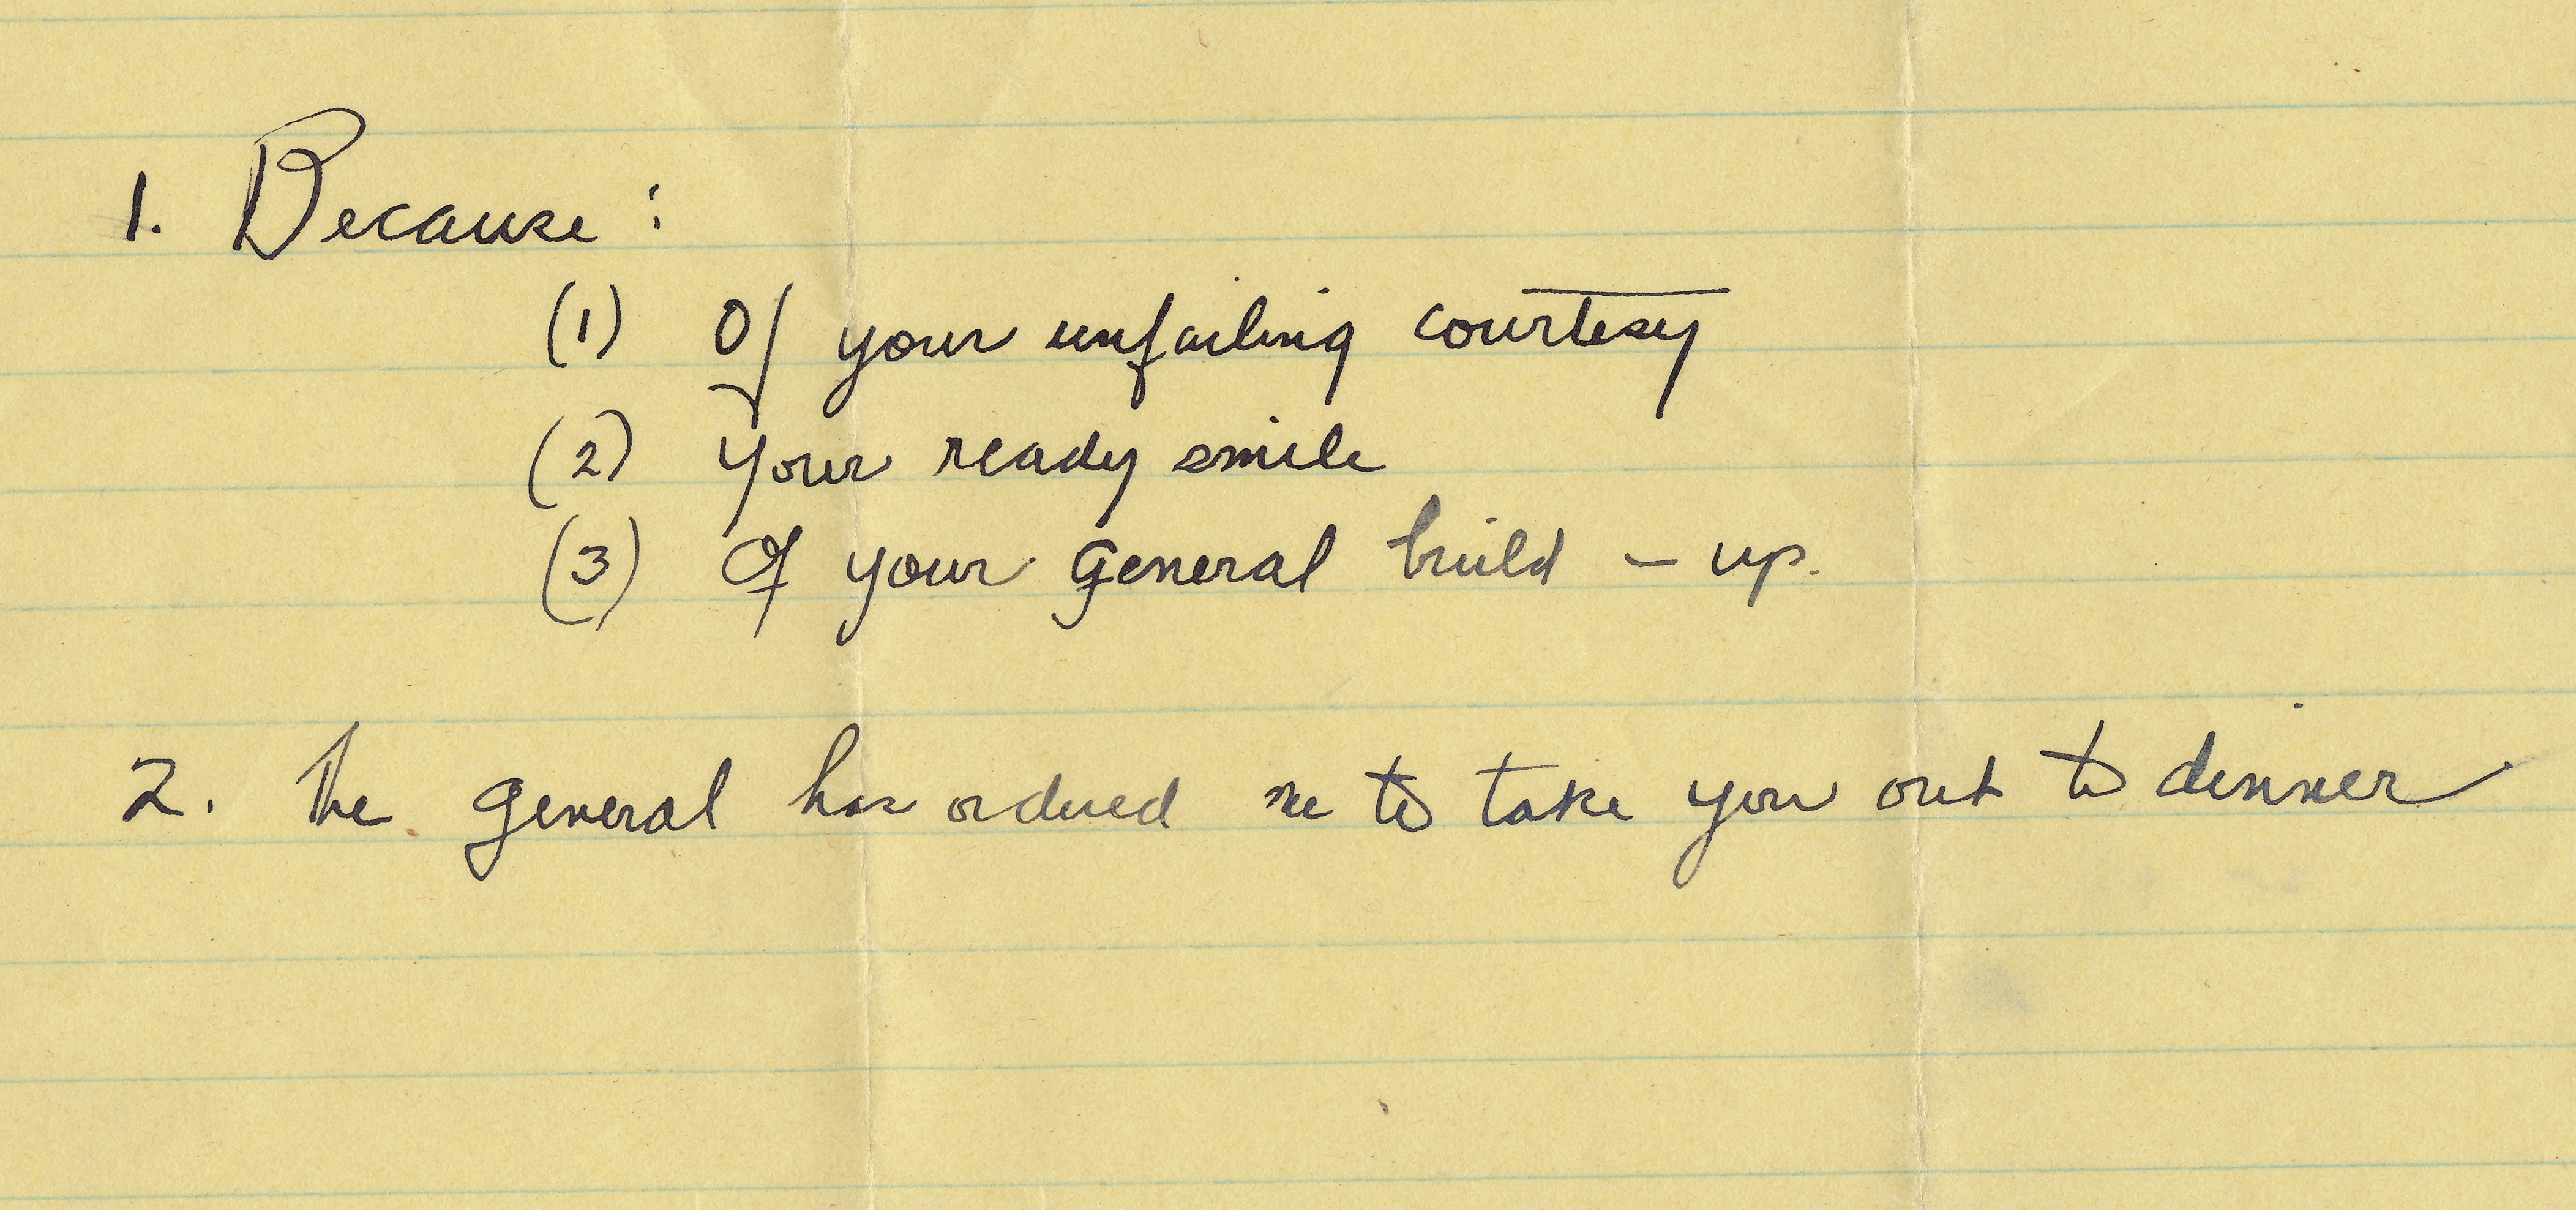 1. Because:
(1) Of your unfailing courtesy
(2) Your ready smile
(3) Of your general build-up.
2. The general has ordered me to take you out to dinner